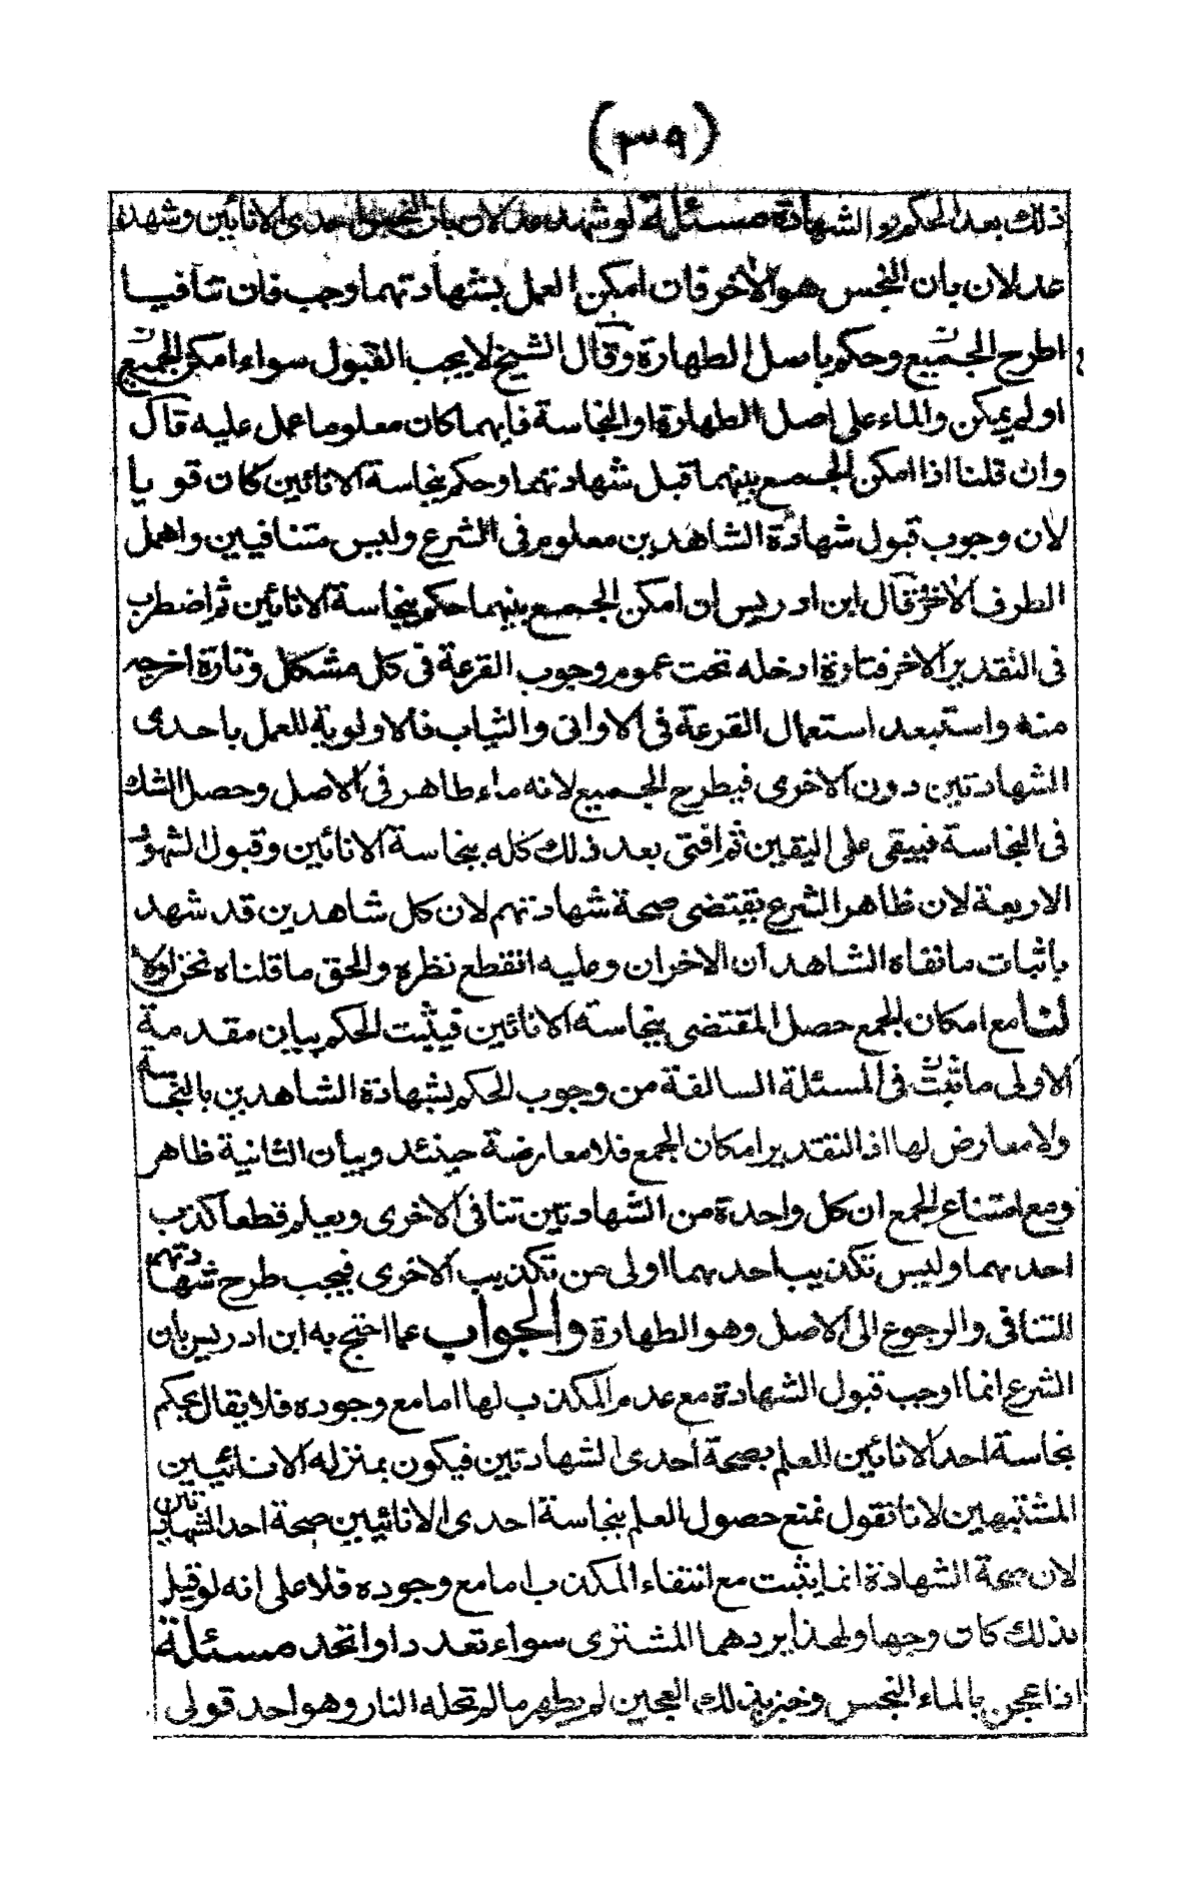 (٣٩)
ذلك بعد الحكم والشهادة مسئلة لو شهد عدلان بان النجس احدى الانائين وشهد
عدلان بان النجس هو الاخر فان امكن العمل بشهادتهما وجب فان تنافيا
اطرح الجميع وحكم باصل الطهارة وقال الشيخ لا يجب القبول سواء امكن الجمع
او لم يمكن والماء على اصل الطهارة او النجاسة فايهما كان معلوما عمل عليه قال
وان قلنا اذا امكن الجمع بينهما قبل شهادتهما وحكم بنجاسة الانائين كان قويا
لان وجوب قبول شهادة الشاهدين معلوم في الشرع وليس متنافيين واهمل
الطرف الاخر وقال ابن ادريس ان امكن الجمع بينهما حكم بنجاسة الانائين ثم اضطرب
في التقدير الاخر فتارة ادخله تحت عموم وجوب القرعة في كل مشكل وتارة اخرجه
منه واستبعد استعمال القرعة في الاواني والثياب فالاولوية للعمل باحدى
الشهادتين دون الاخرى فيطرح الجميع لانه ماء طاهر في الاصل وحصل الشك
في النجاسة فيبقى على اليقين ثم افتى بعد ذلك كله بنجاسة الانائين وقبول الشهود
الاربعة لان ظاهر الشرع يقتضى صحة شهادتهم لان كل شاهدين قد شهد
باثبات ما نفاه الشاهدان الاخران وعليه انقطع نظره والحق ما قلناه نحن اولا
لنا مع امكان الجمع حصل المقتضى بنجاسة الانائين فيثبت الحكم بيان مقدمة
الاولى ما ثبت في المسئلة السالفة من وجوب الحكم بشهادة الشاهدين بالنجاسة
ولا معارض لها اذ التقدير امكان الجمع فلا معارضة حينئد وبيان الثانية ظاهر
ومع امتناع الجمع ان كل واحدة من الشهادتين تنافى الاخرى ويعلم قطعا كذب
احدهما وليس تكذيب احدهما اولى من تكذيب الاخرى فيجب طرح شهادتهما
للتنافى والرجوع الى الاصل وهو الطهارة والجواب عما احتج به ابن ادريس بان
الشرع انما اوجب قبول الشهادة مع عدم المكذب لها اما مع وجوده فلا يقال يحكم
بنجاسة احد الانائين للعلم بصحة احدى الشهادتين فيكون بمنزله الانائيين
المشتبهين لانا نقول نمنع حصول العلم بنجاسة احدى الانائيين صحة احد الشهادتين
لان صحة الشهادة انما يثبت مع انتفاء المكذب اما مع وجوده فلا على انه لو قيل
بذلك كان وجها ولهذا يردهما المشترى سواء تعددا او اتحد مسئلة
اذا عجن بالماء النجس وخبز بذلك العجين لم يطهر ما لم تحله النار وهو احد قولى